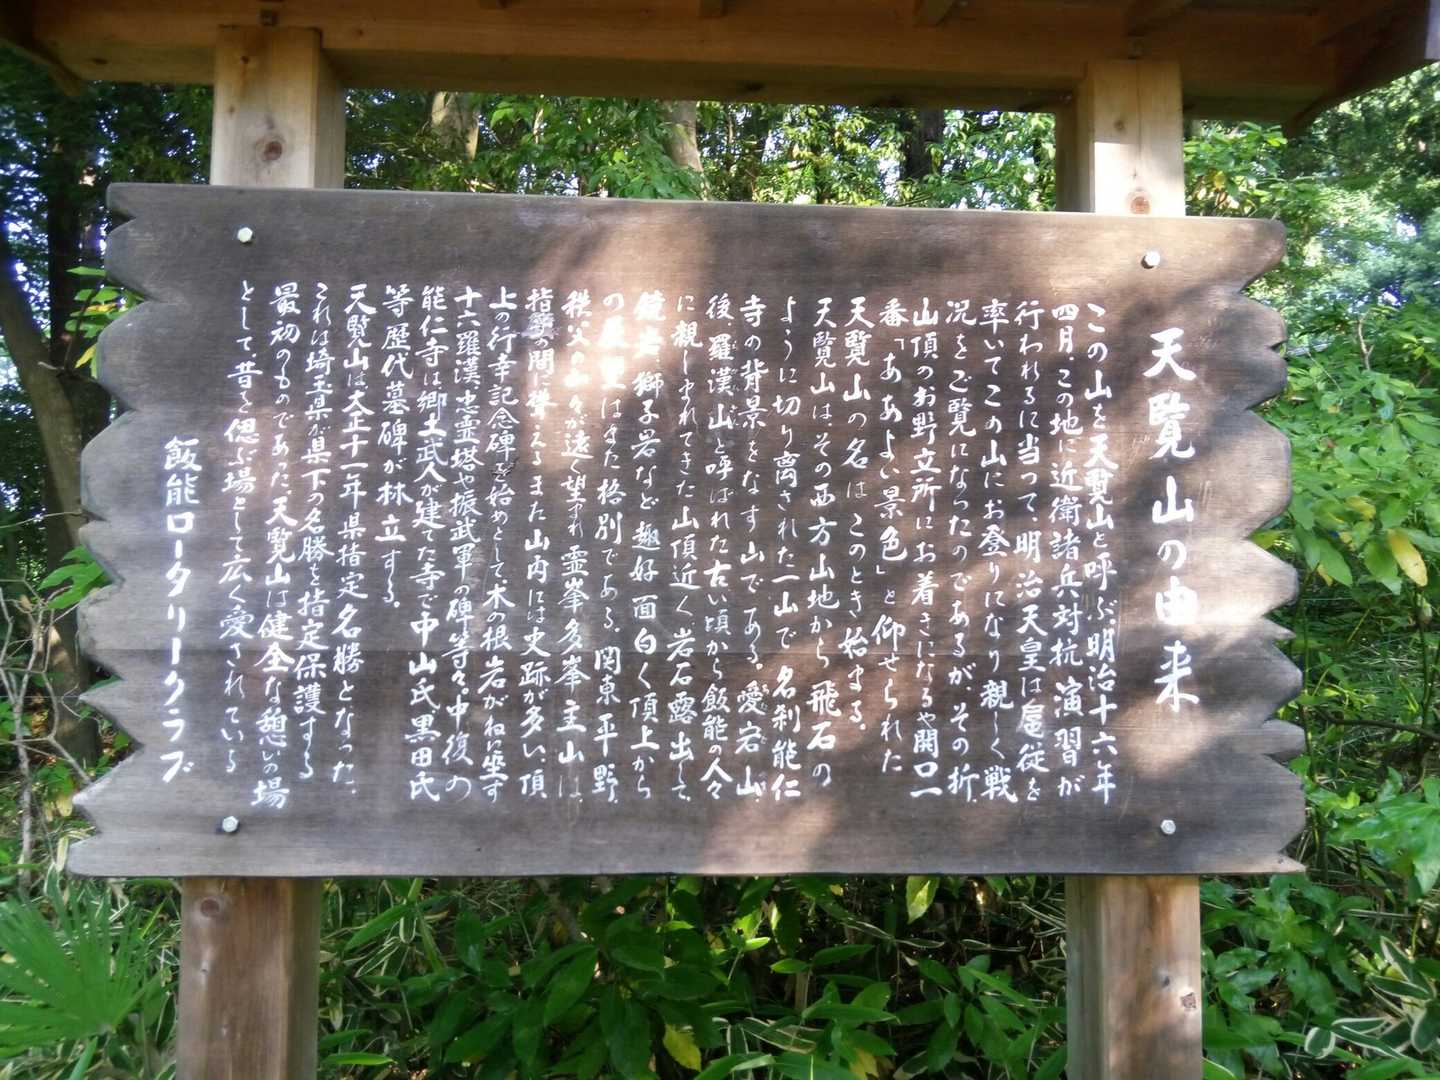 天覧山の由来
この山を天覧山と呼ぶ。明治十六年
四月、この地に近衛諸兵対抗演習が
行われるに当って、明治天皇は扈従を
率いてこの山にお登りになり親しく戦
況をご覧になったのであるが、その折、
山頂のお野立所にお着きになるや開口一
番「ああよい景色」と仰せられた
天覧山の名はこのとき始まる。
天覧山は、その西方山地から飛石の
ように切り離された一山で名刹能仁
寺の背景をなす山である。愛宕山、
後、羅漢山と呼ばれた古い頃から飯能の人々
に親しまれてきた山頂近く、岩石露出して、
鏡岩、獅子岩など趣好面白く頂上から
の展望はまた格別である。関東平野、
秩父の山々が遠く望まれ霊峯多峯主山は、
指呼の間に聳えるまた山内には史跡が多い、頂
上の行幸記念碑を始めとして、木の根岩がねに坐す
十六羅漢、忠霊塔や振武軍の碑等々。中復の
能仁寺は郷土武人が建てた寺で中山氏黒田氏
等歴代墓碑が林立する。
天覧山は、大正十一年県指定名勝となった、
これは埼玉県が県下の名勝を指定保護する
最初のものであった天覧山は健全な憩いの場
として、昔を偲ぶ場として広く愛されている
飯能ロータリークラブ